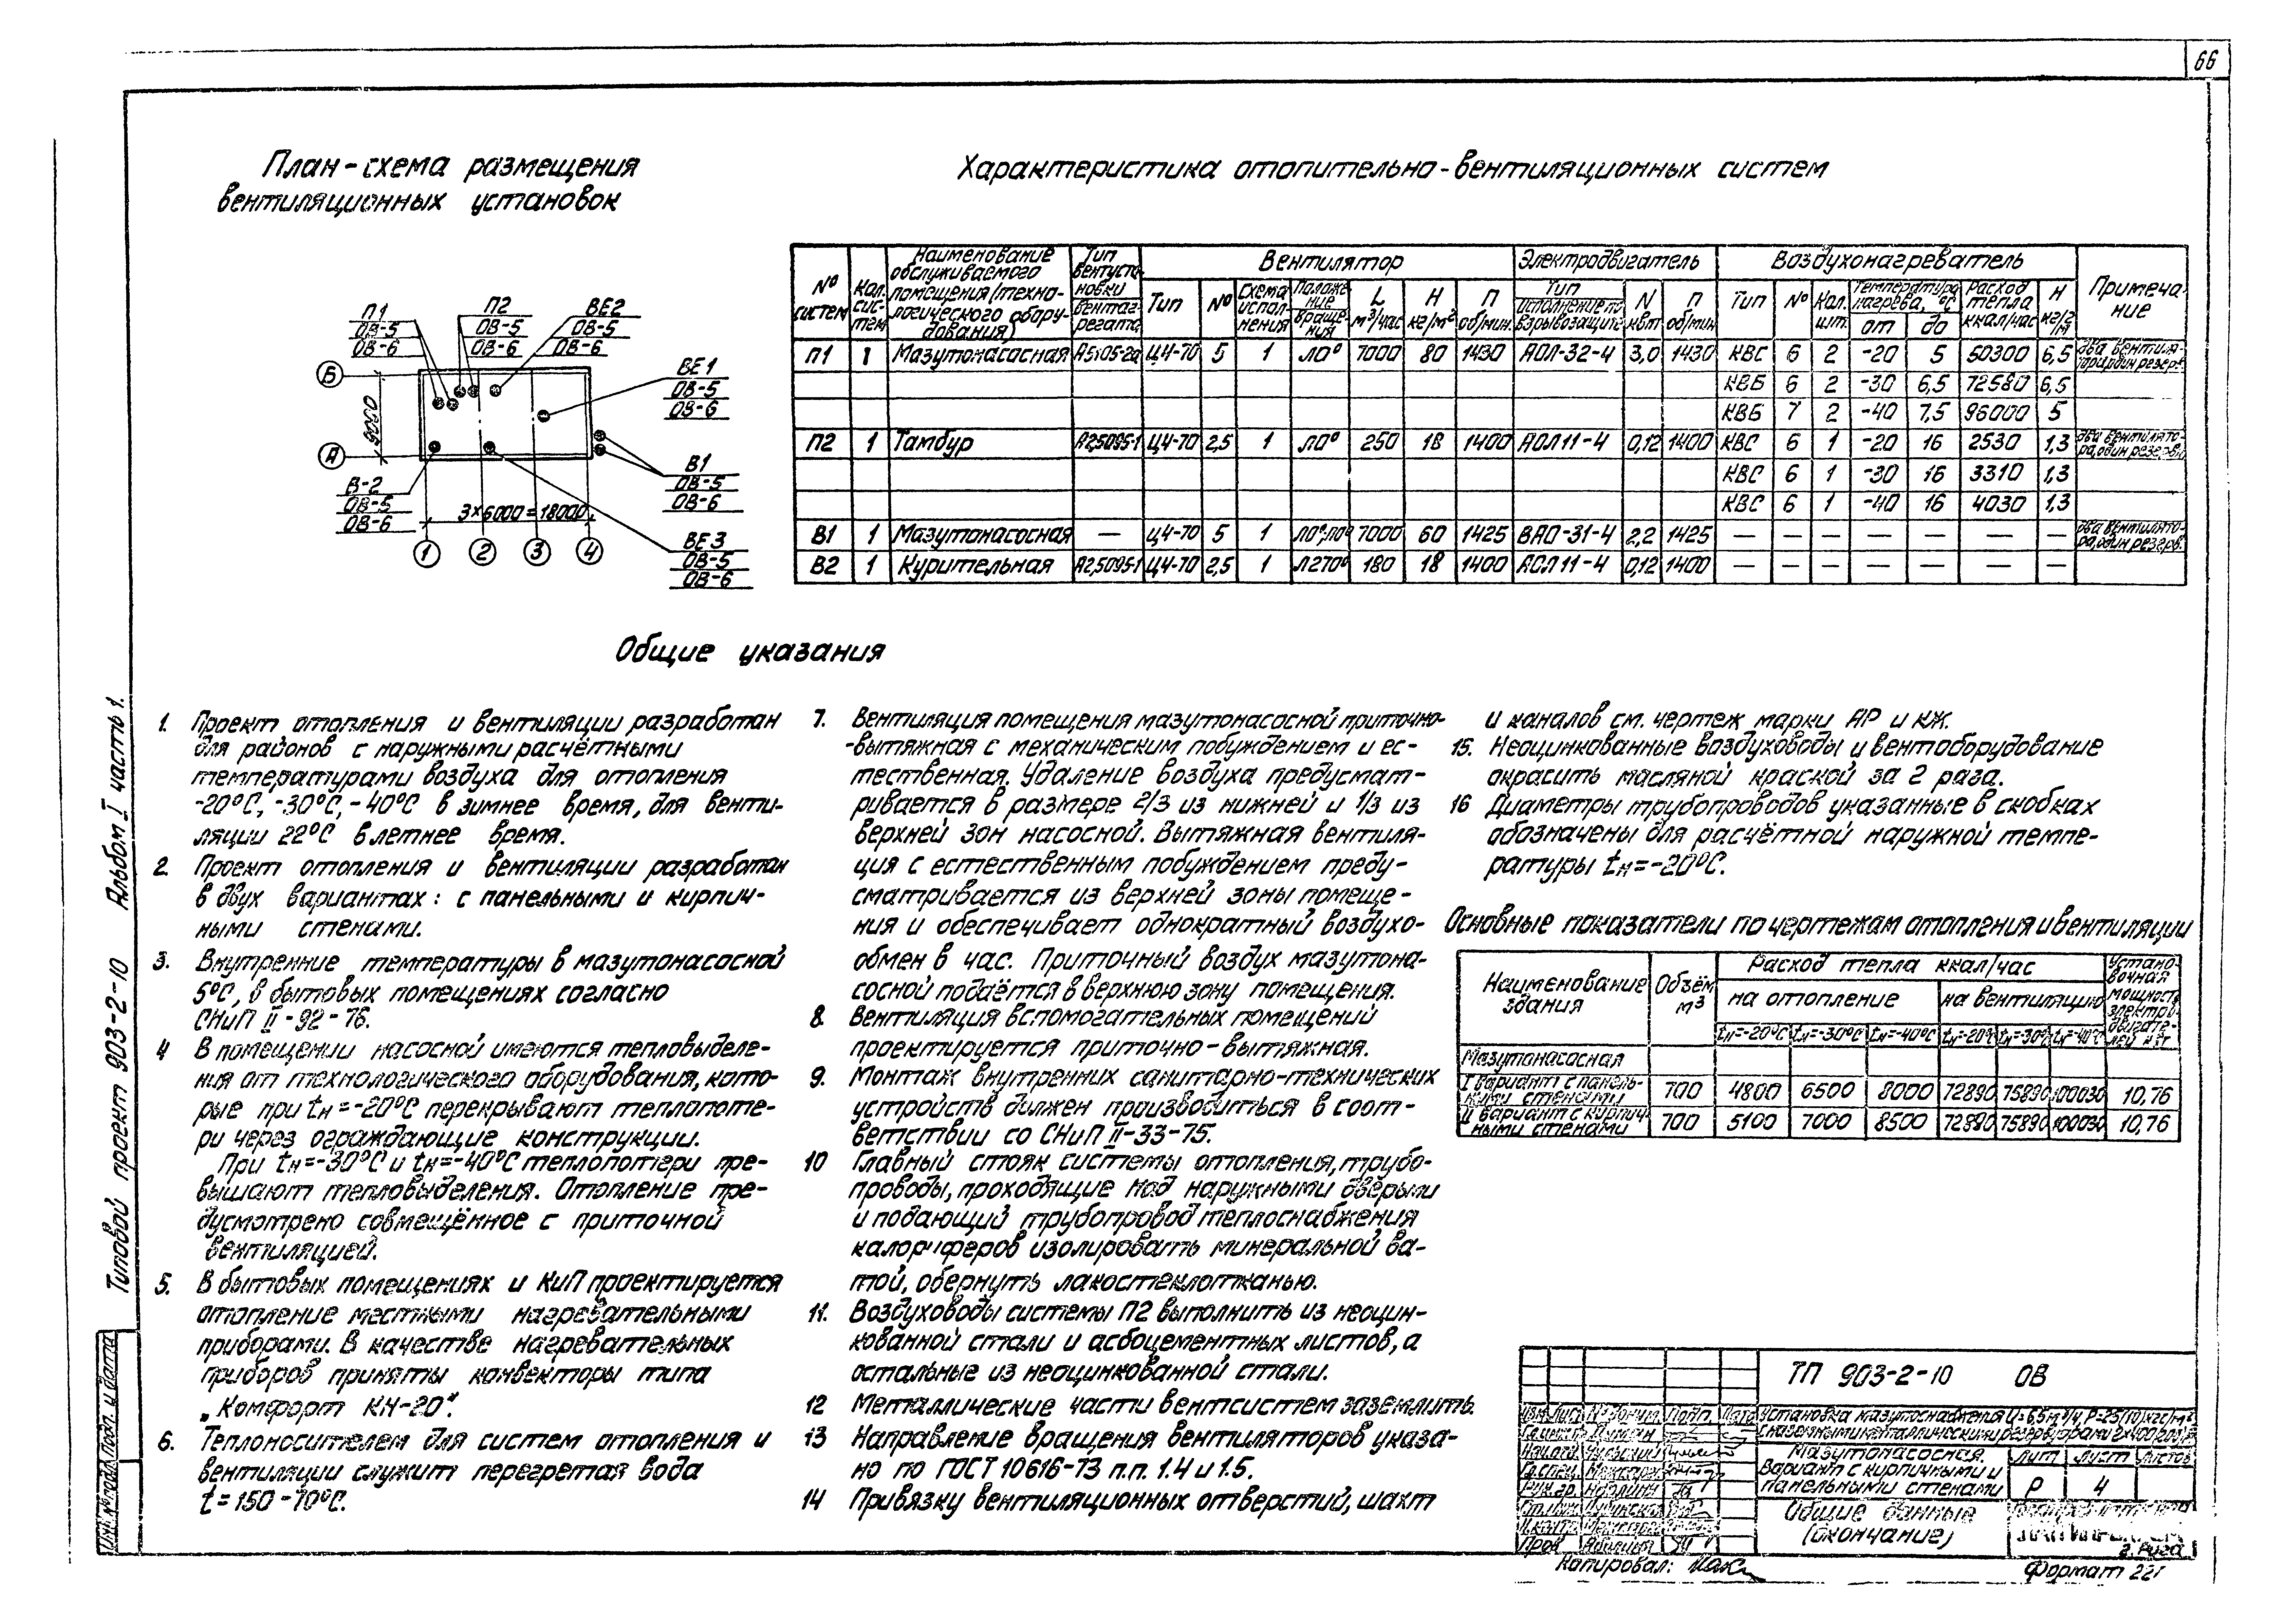 66
План-схема размещения
вентиляционных установок
П1
ОВ-5
ОВ-6
П2
ОВ-5
ОВ-6
ВЕ2
ОВ-5
ОВ-6
ВЕ1
ОВ-5
ОВ-6
Б
9000
А
В1
ОВ-5
ОВ-6
В-2
ОВ-5
ОВ-6
3×6000=18000
1 2 3 4
ВЕ3
ОВ-5
ОВ-6
Характеристика отопительно-вентиляционных систем
№ систем | Кол. систем | Наименование обслуживаемого помещения (технологического оборудования) | Тип вентустановки вентагрегата | Вентилятор | Электродвигатель | Воздухонагреватель | Примечание
Тип | № | Схема исполнения | Положение вращения | L м³/час | Н кг/м² | П об/мин. | Тип исполнение по взрывозащите | N квт | П об/мин | Тип | № | Кол. шт. | Температура нагрева, °С от до | Расход тепла ккал/час | Н кг/м²
П1 1 Мазутонасосная А5105-2а Ц4-70 5 1 Л0° 7000 80 1430 АОЛ-32-4 3,0 1430 КВС 6 2 -20 5 50300 6,5 два вентилятора, один резерв.
КВБ 6 2 -30 6,5 72580 6,5
КВБ 7 2 -40 7,5 96000 5
П2 1 Тамбур А2,5095-1 Ц4-70 2,5 1 Л0° 250 18 1400 АОЛ11-4 0,12 1400 КВС 6 1 -20 16 2530 1,3 два вентилятора, один резерв.
КВС 6 1 -30 16 3310 1,3
КВС 6 1 -40 16 4030 1,3
В1 1 Мазутонасосная — Ц4-70 5 1 7000 60 1425 ВАО-31-4 2,2 1425 — — — — — — — два вентилятора, один резерв.
В2 1 Курительная А2,5095-1 Ц4-70 2,5 1 Л270° 180 18 1400 АОЛ11-4 0,12 1400 — — — — — — —
Общие указания
1. Проект отопления и вентиляции разработан
для районов с наружными расчётными
температурами воздуха для отопления
-20°С, -30°С, -40°С в зимнее время, для венти-
ляции 22°С в летнее время.
2. Проект отопления и вентиляции разработан
в двух вариантах: с панельными и кирпич-
ными стенами.
3. Внутренние температуры в мазутонасосной
5°С, в бытовых помещениях согласно
СНиП II-92-76.
4 В помещении насосной имеются тепловыделе-
ния от технологического оборудования, кото-
рые при tн=-20°С перекрывают теплопоте-
ри через ограждающие конструкции.
При tн=-30°С и tн=-40°С теплопотери пре-
вышают тепловыделения. Отопление пре-
дусмотрено совмещённое с приточной
вентиляцией.
5. В бытовых помещениях и КиП проектируется
отопление местными нагревательными
приборами. В качестве нагревательных
приборов приняты конвекторы типа
„Комфорт КН-20".
6. Теплоносителем для систем отопления и
вентиляции служит перегретая вода
t=150-70°С.
7. Вентиляция помещения мазутонасосной приточно-
-вытяжная с механическим побуждением и ес-
тественная. Удаление воздуха предусмат-
ривается в размере 2/3 из нижней и 1/3 из
верхней зон насосной. Вытяжная вентиля-
ция с естественным побуждением преду-
сматривается из верхней зоны помеще-
ния и обеспечивает однократный воздухо-
обмен в час. Приточный воздух мазутона-
сосной подаётся в верхнюю зону помещения.
8. Вентиляция вспомогательных помещений
проектируется приточно-вытяжная.
9. Монтаж внутренних санитарно-технических
устройств должен производиться в соот-
ветствии со СНиП II-33-75.
10 Главный стояк системы отопления, трубо-
проводы, проходящие над наружными дверьми
и подающий трубопровод теплоснабжения
калориферов изолировать минеральной ва-
той, обернуть лакостеклотканью.
11. Воздуховоды системы П2 выполнить из неоцин-
кованной стали и асбоцементных листов, а
остальные из неоцинкованной стали.
12 Металлические части вентсистем заземлить.
13 Направление вращения вентиляторов указа-
но по ГОСТ 10616-73 п.п. 1.4 и 1.5.
14 Привязку вентиляционных отверстий, шахт
и каналов см. чертеж марки АР и КЖ.
15. Неоцинкованные воздуховоды и вентоборудование
окрасить масляной краской за 2 раза.
16 Диаметры трубопроводов указанные в скобках
обозначены для расчётной наружной темпе-
ратуры tн=-20°С.
Основные показатели по чертежам отопления и вентиляции
Наименование здания | Объём м³ | Расход тепла ккал/час | Установочная мощность электродвигателей квт
на отопление | на вентиляцию
tн=-20°С tн=-30°С tн=-40°С tн=-20°С tн=-30° tн=-40°С
Мазутонасосная
I вариант с панельными стенами 700 4800 6500 8000 72890 75890 100030 10,76
II вариант с кирпичными стенами 700 5100 7000 8500 72890 75890 100030 10,76
ТП 903-2-10 ОВ
Изм. Лист № докум. Подп. Дата
Установка мазутоснабжения Q=6,5м³/ч, Р=25(10)кгс/м²
с наземными металлическими резервуарами
Мазутонасосная.
Вариант с кирпичными и
панельными стенами
Лит Лист Листов
Р 4
Общие данные
(окончание)
Нач.отд.
Гл.спец.
Рук.гр.
Н.контр
Пров
г. Рига
Копировал:
Формат 22г
Типовой проект 903-2-10 Альбом I часть 1.
Инв.№подл. Подп. и дата